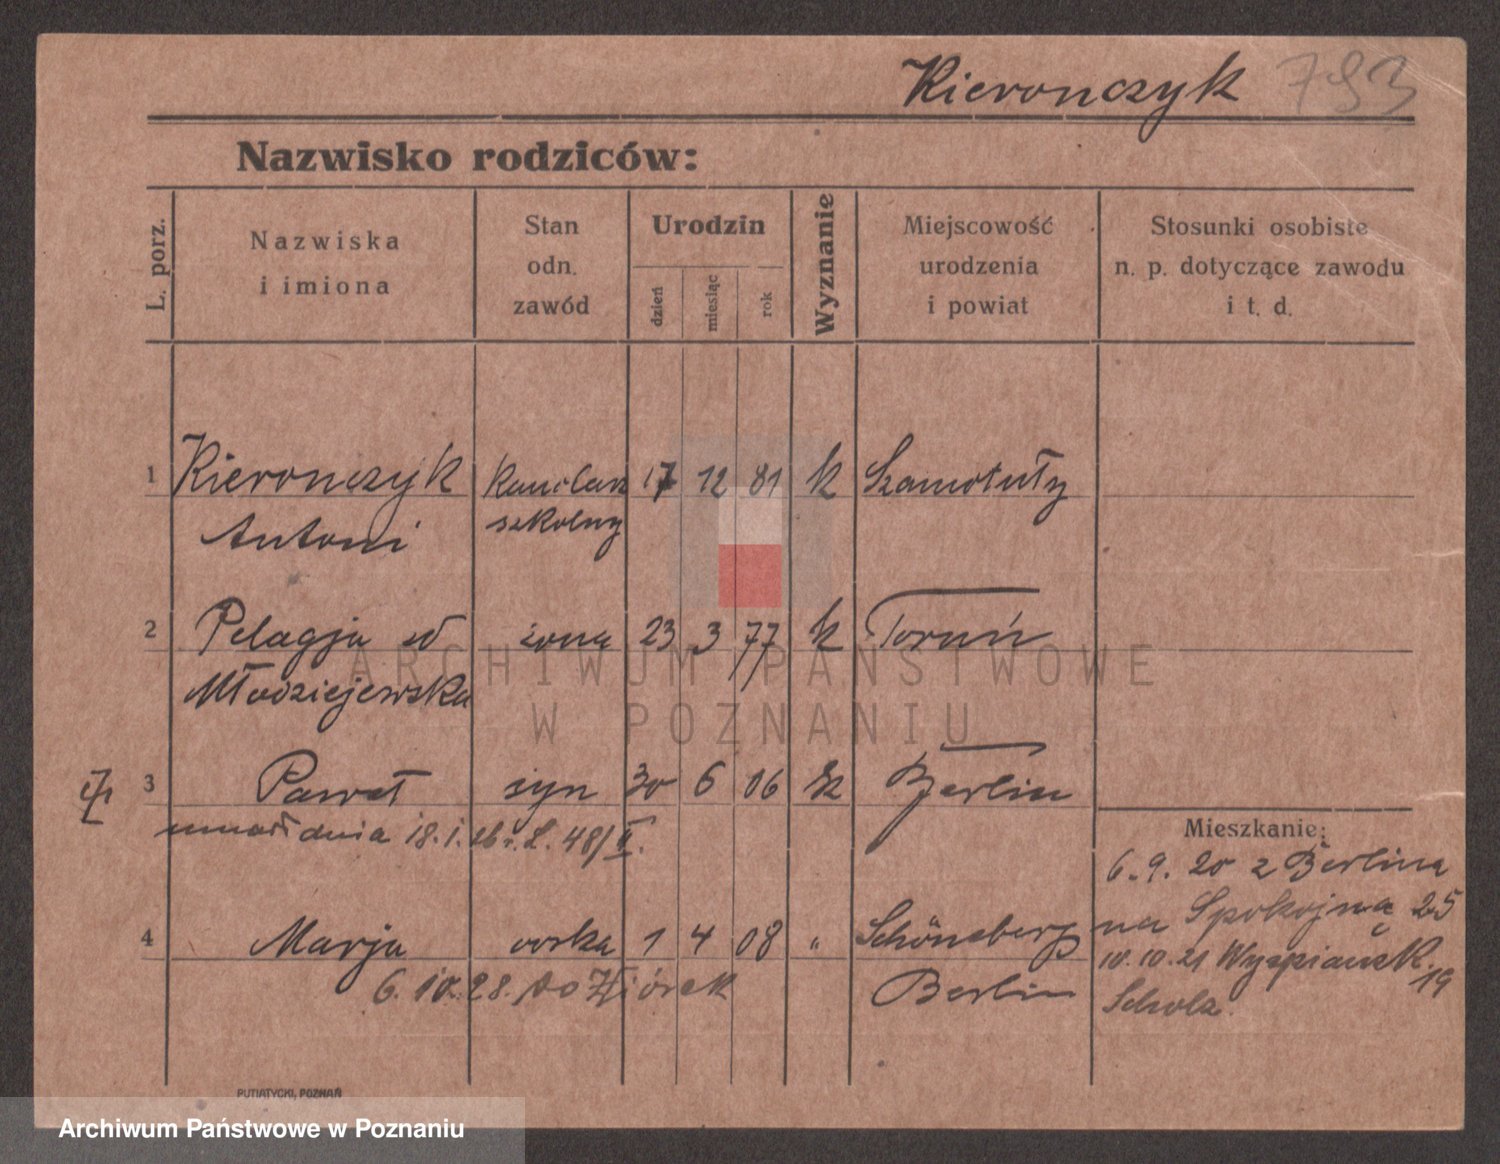 Kieronczyk 793
Nazwisko rodziców:
L. porz.
Nazwiska
i imiona
Stan
odn.
zawód
Urodzin
dzień
miesiąc
rok
Wyznanie
Miejscowość
urodzenia
i powiat
Stosunki osobiste
n. p. dotyczące zawodu
i t. d.
1 Kieronczyk 17 12 81 k Szamotuły
Antoni szkolny
2 Pelagja żona 23 3 77 k Toruń
Młodziejewska
3 Paweł syn 30 6 06 k Berlin
umarł dnia 18. 1. 26 r. L. 48/II.
4 Marja corka 1 4 08 " Schöneberg
6. 10. 28. do Berlin
Mieszkanie:
6. 9. 20 z Berlina
na Spokojną 25
10. 10. 21 Wyspiańsk. 19
Scholz.
PUTIATYCKI, POZNAŃ
ARCHIWUM PAŃSTWOWE
W POZNANIU
Archiwum Państwowe w Poznaniu